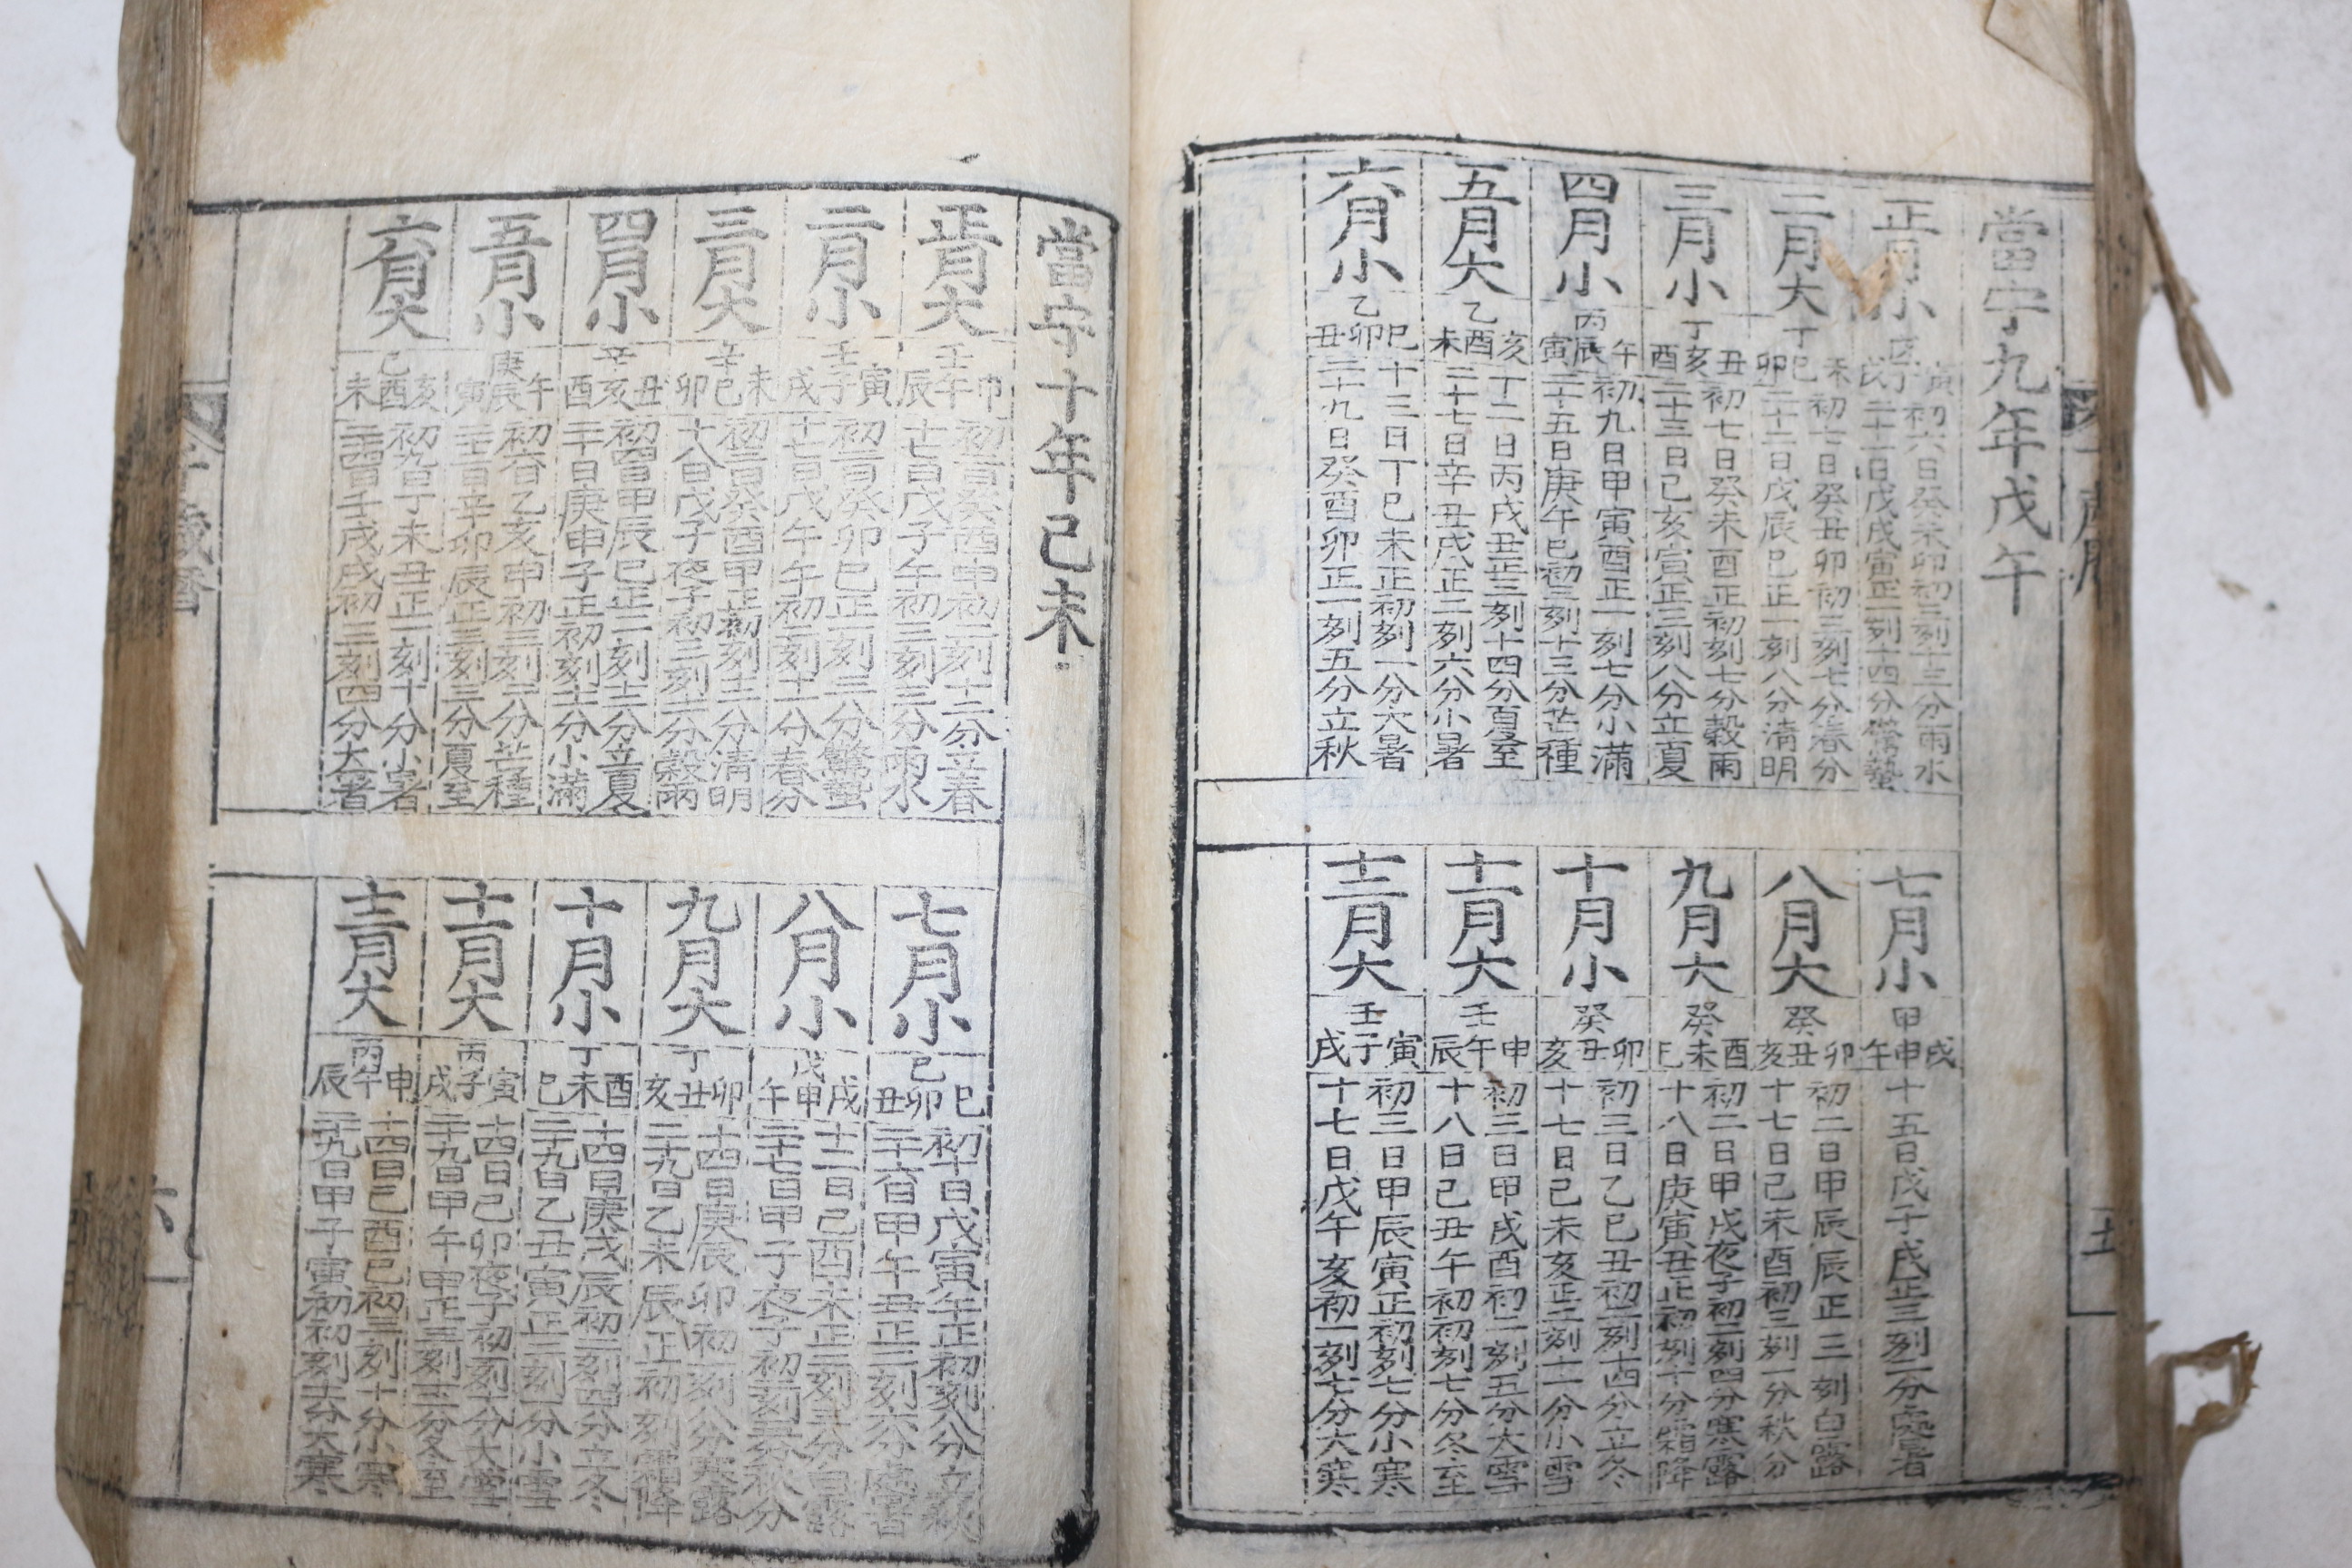 當宁九年戊午
正月小
戊
寅子戌
初六日癸未卯初三刻十三分雨水
二十一日戊戌寅正二刻十四分驚蟄
二月大
丁
未巳卯
初七日癸丑卯初三刻七分春分
二十二日戊辰巳正一刻八分清明
三月小
丁
丑亥酉
初七日癸未酉正初刻七分穀雨
二十三日己亥寅正三刻八分立夏
四月小
丙
午辰寅
初九日甲寅酉正一刻七分小滿
二十五日庚午巳初三刻十三分芒種
五月大
乙
亥酉未
十二日丙戌丑正三刻十四分夏至
二十七日辛丑戌正二刻六分小暑
六月小
乙
巳卯丑
十三日丁巳未正初刻一分大暑
二十九日癸酉卯正一刻五分立秋
七月小
甲
戌申午
十五日戊子戌正三刻二分處暑
八月大
癸
卯丑亥
初二日甲辰辰正三刻白露
十七日己未酉初三刻一分秋分
九月大
癸
酉未巳
初二日甲戌夜子初二刻四分寒露
十八日庚寅丑正初刻十分霜降
十月小
癸
卯丑亥
初三日乙巳丑初二刻十四分立冬
十七日己未亥正三刻十一分小雪
十一月大
壬
申午辰
初三日甲戌酉初二刻五分大雪
十八日己丑午初初刻七分冬至
十二月大
壬
寅子戌
初三日甲辰寅正初刻七分小寒
十七日戊午亥初一刻七分大寒
當宁十年己未
正月大
壬
申午辰
初二日癸酉申初二刻十二分立春
十七日戊子午初三刻三分雨水
二月小
壬
寅子戌
初二日癸卯巳正二刻三分驚蟄
十七日戊午午初二刻十一分春分
三月大
辛
未巳卯
初三日癸酉申正初刻十二分清明
十八日戊子夜子初三刻十二分穀雨
四月小
辛
丑亥酉
初四日甲辰巳正二刻十二分立夏
二十日庚申子正初刻十二分小滿
五月小
庚
午辰寅
初六日乙亥申初三刻二分芒種
二十二日辛卯辰正三刻三分夏至
六月大
己
亥酉未
初九日丁未丑正二刻十分小暑
二十四日壬戌戌初三刻四分大暑
七月小
己
巳卯丑
初十日戊寅午正初刻八分立秋
二十六日甲午丑正二刻六分處暑
八月小
戊
戌申午
十二日己酉未正二刻三分白露
二十七日甲子夜子初三刻三分秋分
九月大
丁
卯丑亥
十四日庚辰卯初二刻八分寒露
二十九日乙未辰正初刻霜降
十月小
丁
酉未巳
十四日庚戌辰初二刻四分立冬
二十九日乙丑寅正三刻二分小雪
十一月大
丙
寅子戌
十四日己卯夜子初一刻十分大雪
二十九日甲午申正三刻三分冬至
十二月大
丙
申午辰
十四日己酉巳初三刻十分小寒
二十九日甲子寅初初刻十二分大寒